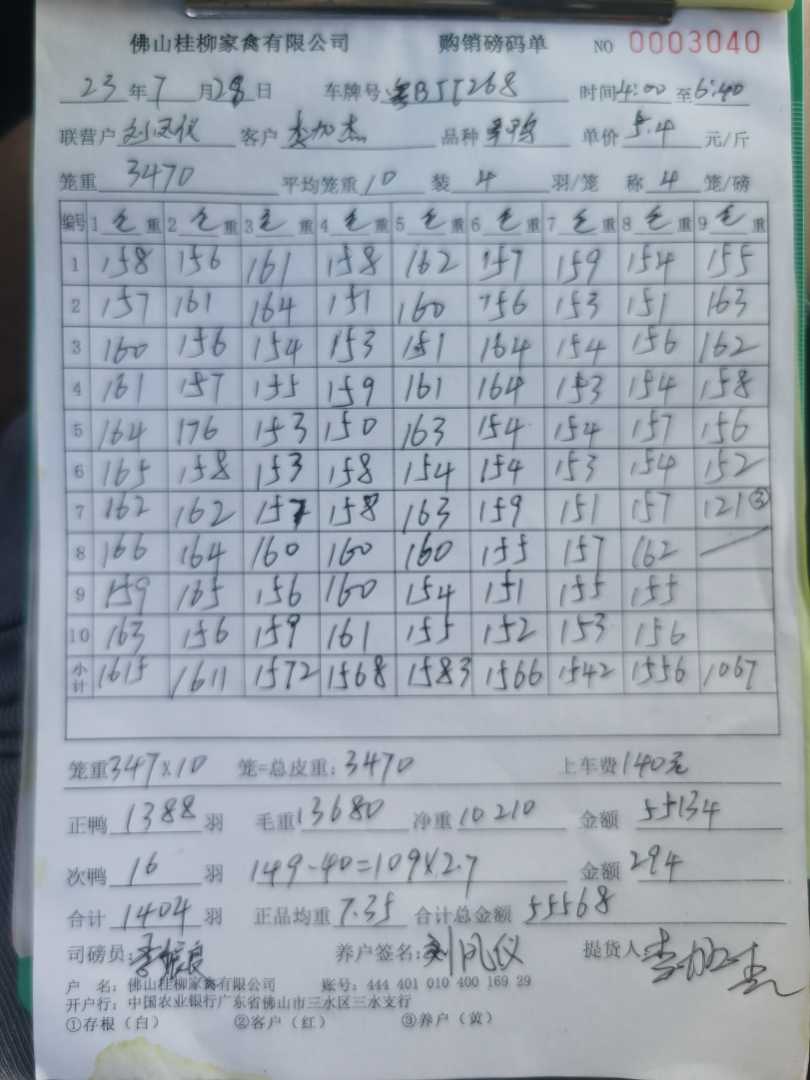 佛山桂柳家禽有限公司 购销磅码单 NO 0003040
23年7月28日 车牌号 粤B55268 时间4:00至6:40
联营户 刘凤仪 客户 李加杰 品种 单价 5.4 元/斤
笼重 3470 平均笼重 10 装 4 羽/笼 称 4 笼/磅
编号 1 毛 重 2 毛 重 3 毛 重 4 毛 重 5 毛 重 6 毛 重 7 毛 重 8 毛 重 9 毛 重
1 158 156 161 158 162 157 159 154 155
2 157 161 164 151 160 156 153 151 163
3 160 156 154 153 151 164 154 156 162
4 161 157 155 159 161 164 153 154 158
5 164 176 153 150 163 154 154 157 156
6 165 158 153 158 154 154 153 154 152
7 162 162 157 158 163 159 151 157 121③
8 166 164 160 160 160 155 157 162
9 159 165 156 160 154 151 155 155
10 163 156 159 161 155 152 153 156
小计 1615 1611 1572 1568 1583 1566 1542 1556 1067
笼重347×10 笼=总皮重:3470 上车费140元
正鸭 1388 羽 毛重13680 净重10210 金额 55134
次鸭 16 羽 149-40=109×2.7 金额 294
合计 1404 羽 正品均重 7.35 合计总金额 55568
司磅员: 养户签名:刘凤仪 提货人李加杰
户 名:佛山桂柳家禽有限公司 账号:444 401 010 400 169 29
开户行:中国农业银行广东省佛山市三水区三水支行
①存根(白) ②客户(红) ③养户(黄)